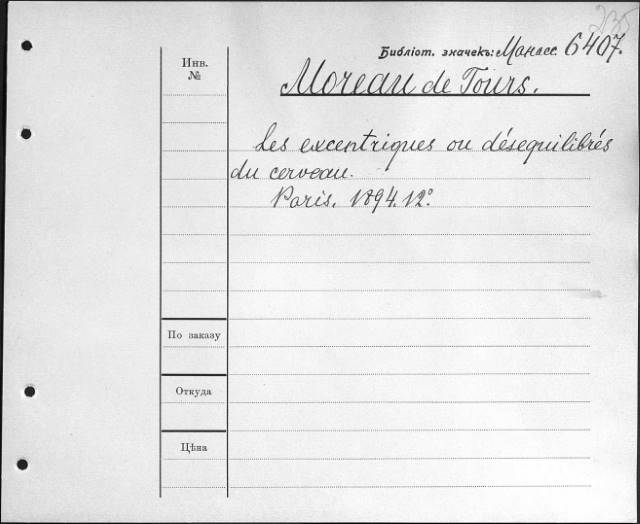 Библіот. значекъ: Манасс. 6407.
Инв.
№
Moreau de Tours.
Les excentriques ou déséquilibrés
du cerveau.
Paris. 1894. 12º
По заказу
Откуда
Цѣна